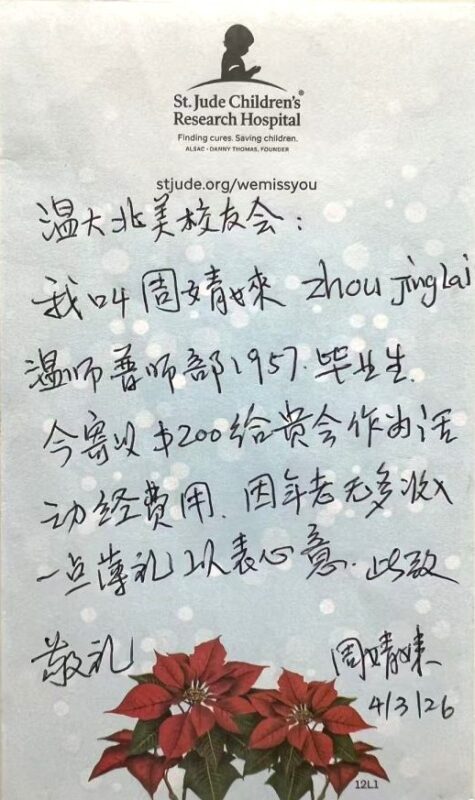 St. Jude Children's®
Research Hospital
Finding cures. Saving children.
ALSAC • DANNY THOMAS, FOUNDER
stjude.org/wemissyou
温大北美校友会：
我叫周婧婡 zhou jinglai
温师普师部1957.毕业生.
今寄以$200给贵会作为活
动经费用.因年老无多收入
一点薄礼以表心意.此致
敬礼 周婧婡
4/3/26
12L1